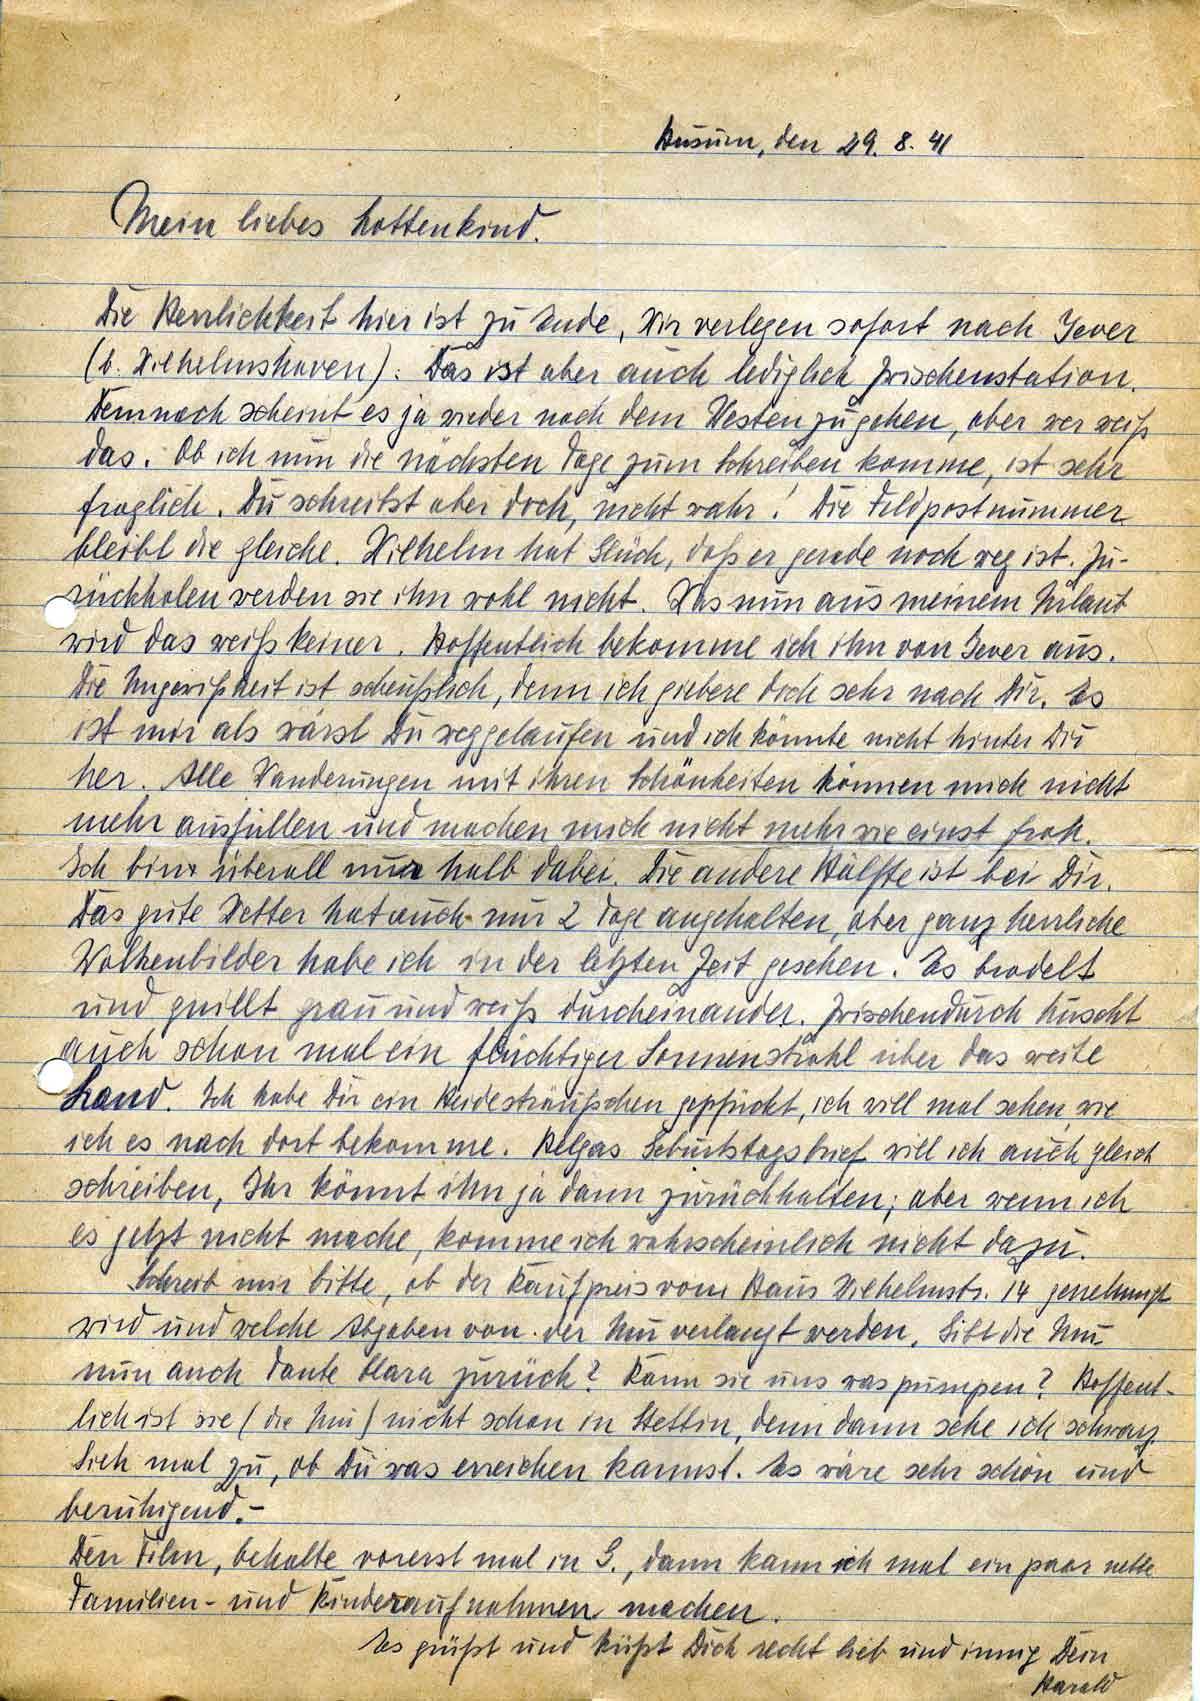 Husum, den 29. 8. 41
Mein liebes Lottenkind.
Die Herrlichkeit hier ist zu Ende, Wir verlegen sofort nach Jever
(b. Wilhelmshaven). Das ist aber auch lediglich Zwischenstation.
Demnach scheint es ja wieder nach dem Westen zu gehen, aber wer weiß
das. Ob ich nun die nächsten Tage zum Schreiben komme, ist sehr
fraglich. Du schreibst aber doch, nicht wahr! Die Feldpostnummer
bleibt die gleiche. Wilhelm hat Glück, daß er gerade noch weg ist. Zu-
rückholen werden sie ihn wohl nicht. Was nun aus meinem Urlaub
wird das weiß keiner. Hoffentlich bekomme ich ihn von Jever aus.
Die Ungewißheit ist scheußlich, denn ich giebere doch sehr nach Dir. Es
ist mir als wärst Du weggelaufen und ich könnte nicht hinter Dir
her. Alle Wanderungen mit ihren Schönheiten können mich nicht
mehr ausfüllen und machen mich nicht mehr wie einst froh.
Ich bin überall nur halb dabei. Die andere Hälfte ist bei Dir.
Das gute Wetter hat auch nur 2 Tage angehalten, aber ganz herrliche
Wolkenbilder habe ich in der letzten Zeit gesehen. Es brodelt
und quillt grau und weiß durcheinander. Zwischendurch huscht
auch schon mal ein flüchtiger Sonnenstrahl über das weite
Land. Ich habe Dir ein Heidesträußchen gepflückt, ich will mal sehen, wie
ich es nach dort bekomme. Helgas Geburtstagsbrief will ich auch gleich
schreiben, Ihr könnt ihn ja dann zurückhalten; aber wenn ich
es jetzt nicht mache, komme ich wahrscheinlich nicht dazu.
Schreib mir bitte, ob der Kaufpreis vom Haus Wilhelmstr. 14 genehmigt
wird und welche Abgaben von der Mu verlangt werden. Gibt die Mu
nun auch Tante Clara zurück? Kann sie uns was pumpen? Hoffent-
lich ist sie (die Mu) nicht schon in Stettin, denn dann sehe ich schwarz.
Sieh mal zu, ob Du was erreichen kannst. Es wäre sehr schön und
beruhigend.-
Den Film, behalte vorerst mal in G., dann kann ich mal ein paar nette
Familien- und Kinderaufnahmen machen.
Es grüßt und küßt Dich recht lieb und innig Dein
Harald